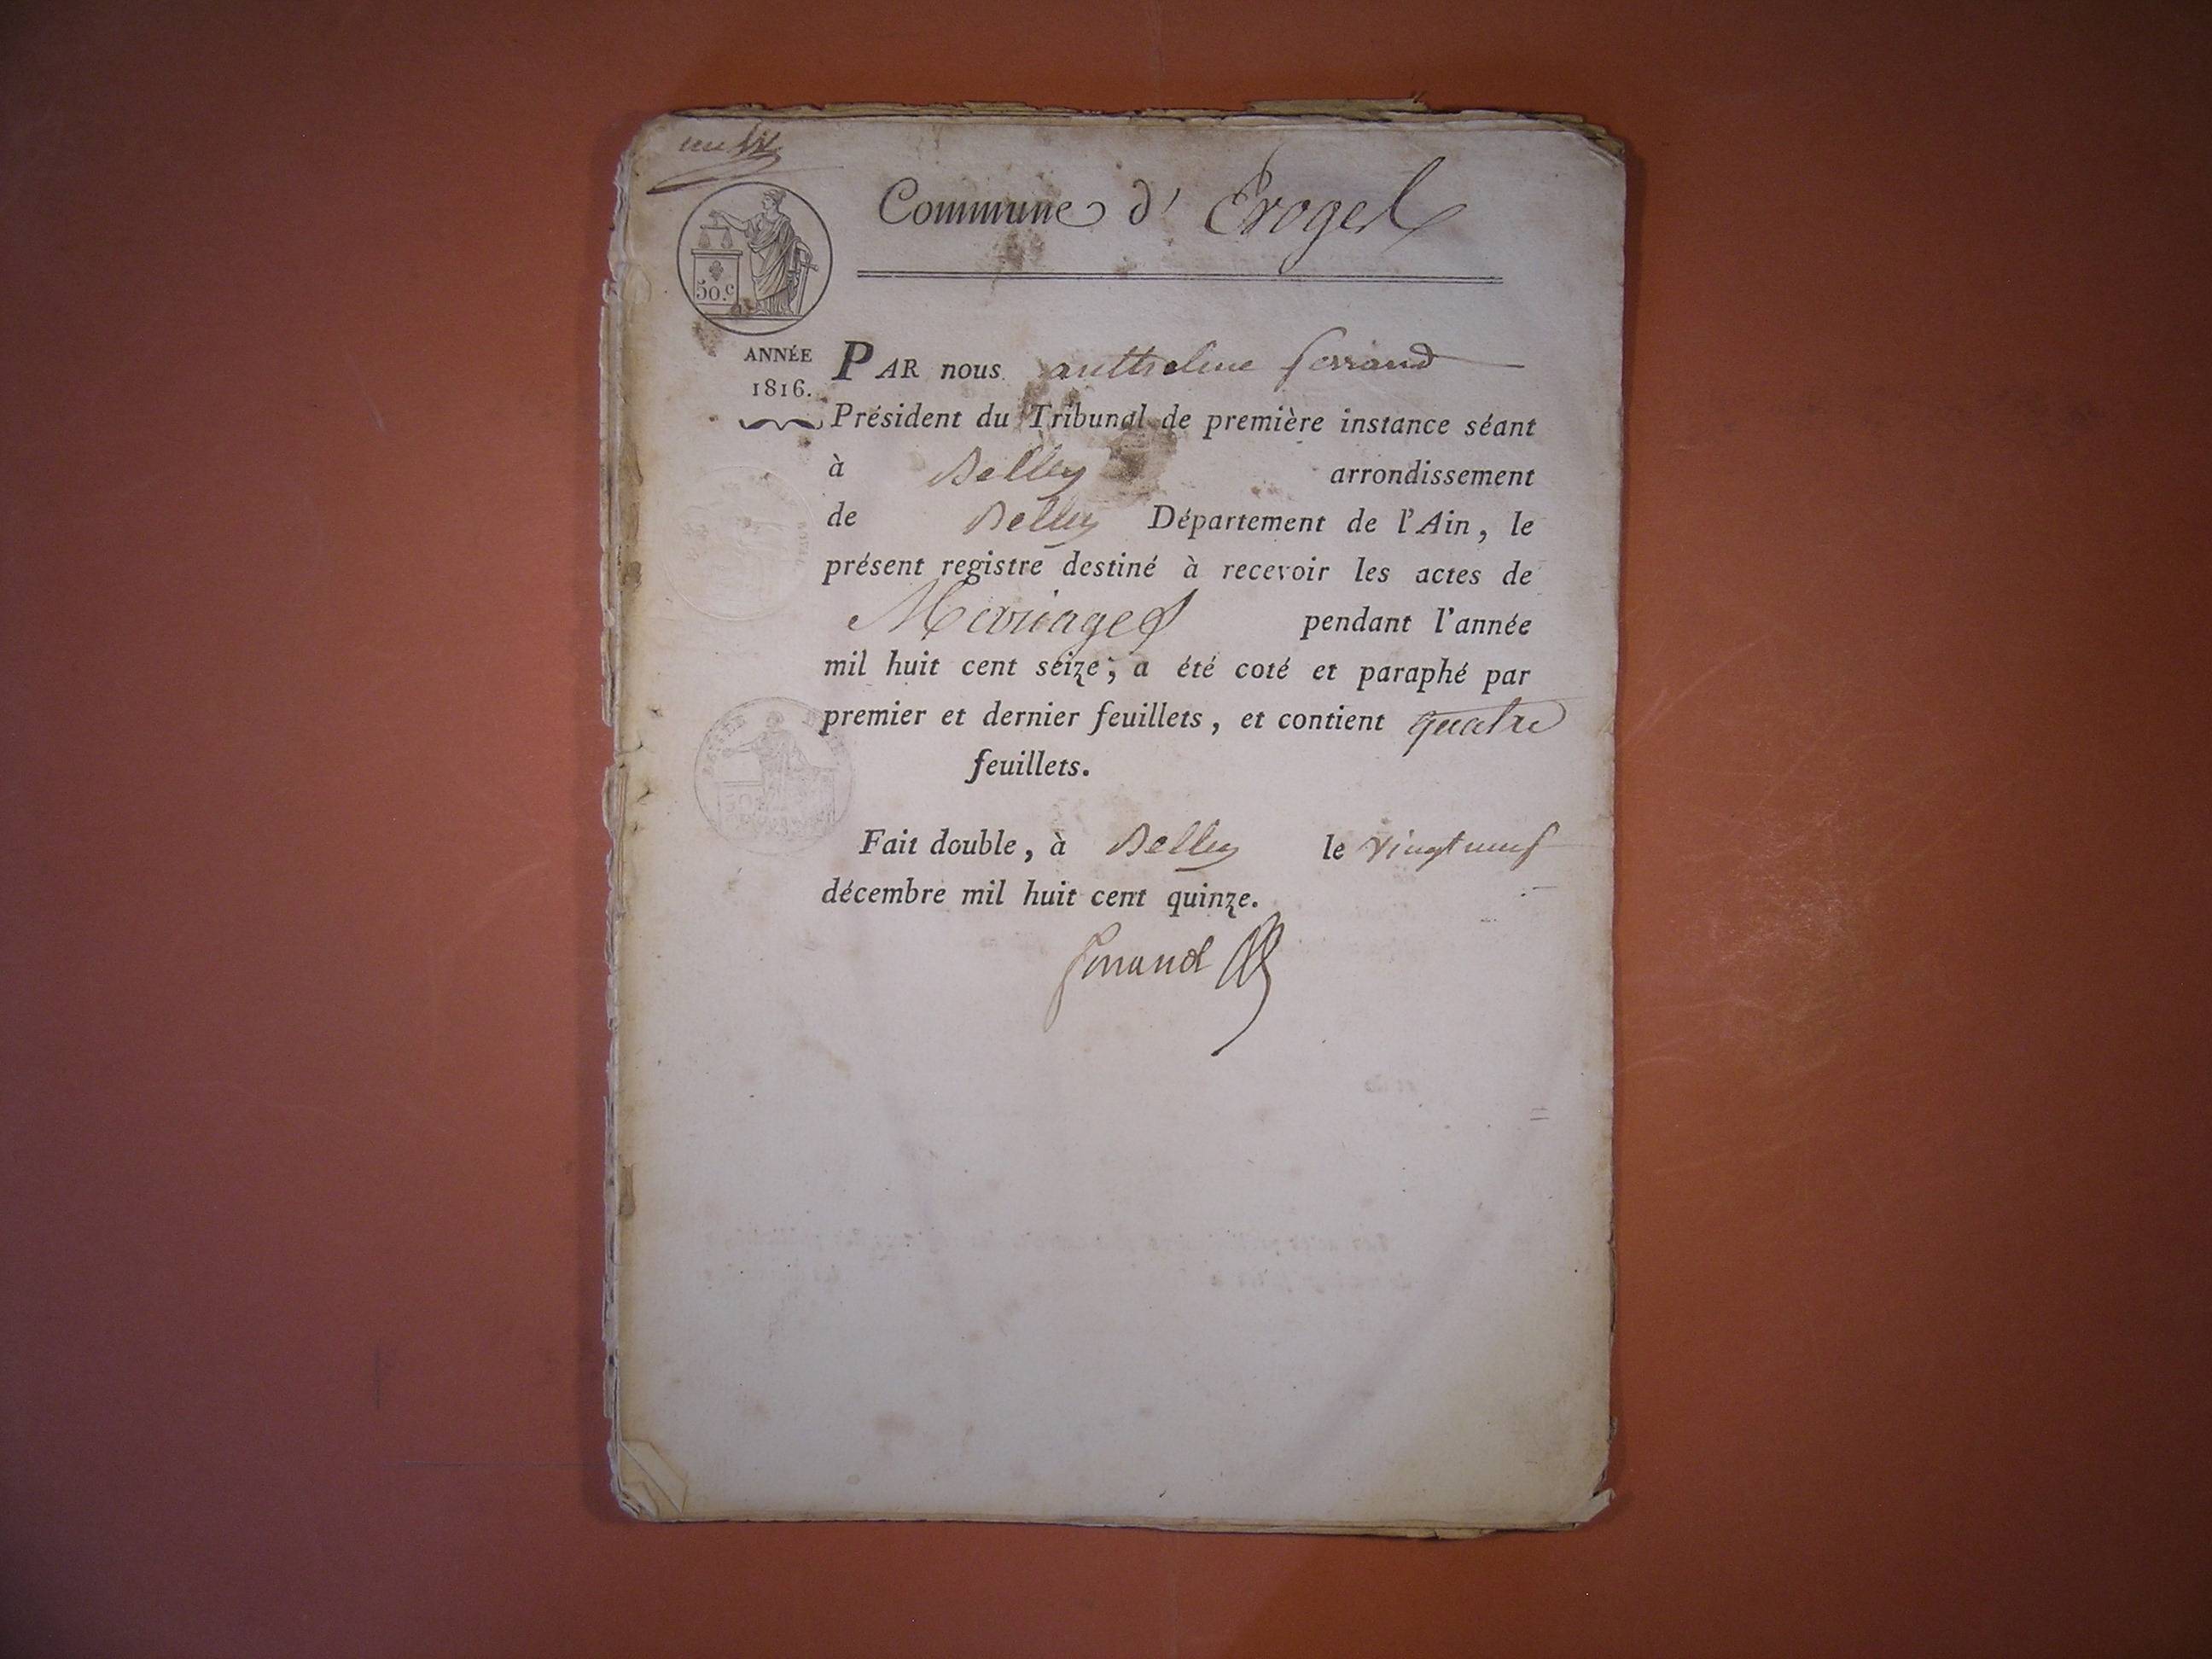 Commune d' Erogel
50.c
ANNÉE
1816.
PAR nous anthelme ferrand
Président du Tribunal de première instance séant
à Belley arrondissement
de Belley Département de l'Ain, le
présent registre destiné à recevoir les actes de
Mariages pendant l'année
mil huit cent seize; a été coté et paraphé par
premier et dernier feuillets, et contient quatre
feuillets.
Fait double, à Belley le vingt neuf
décembre mil huit cent quinze.
ferrand